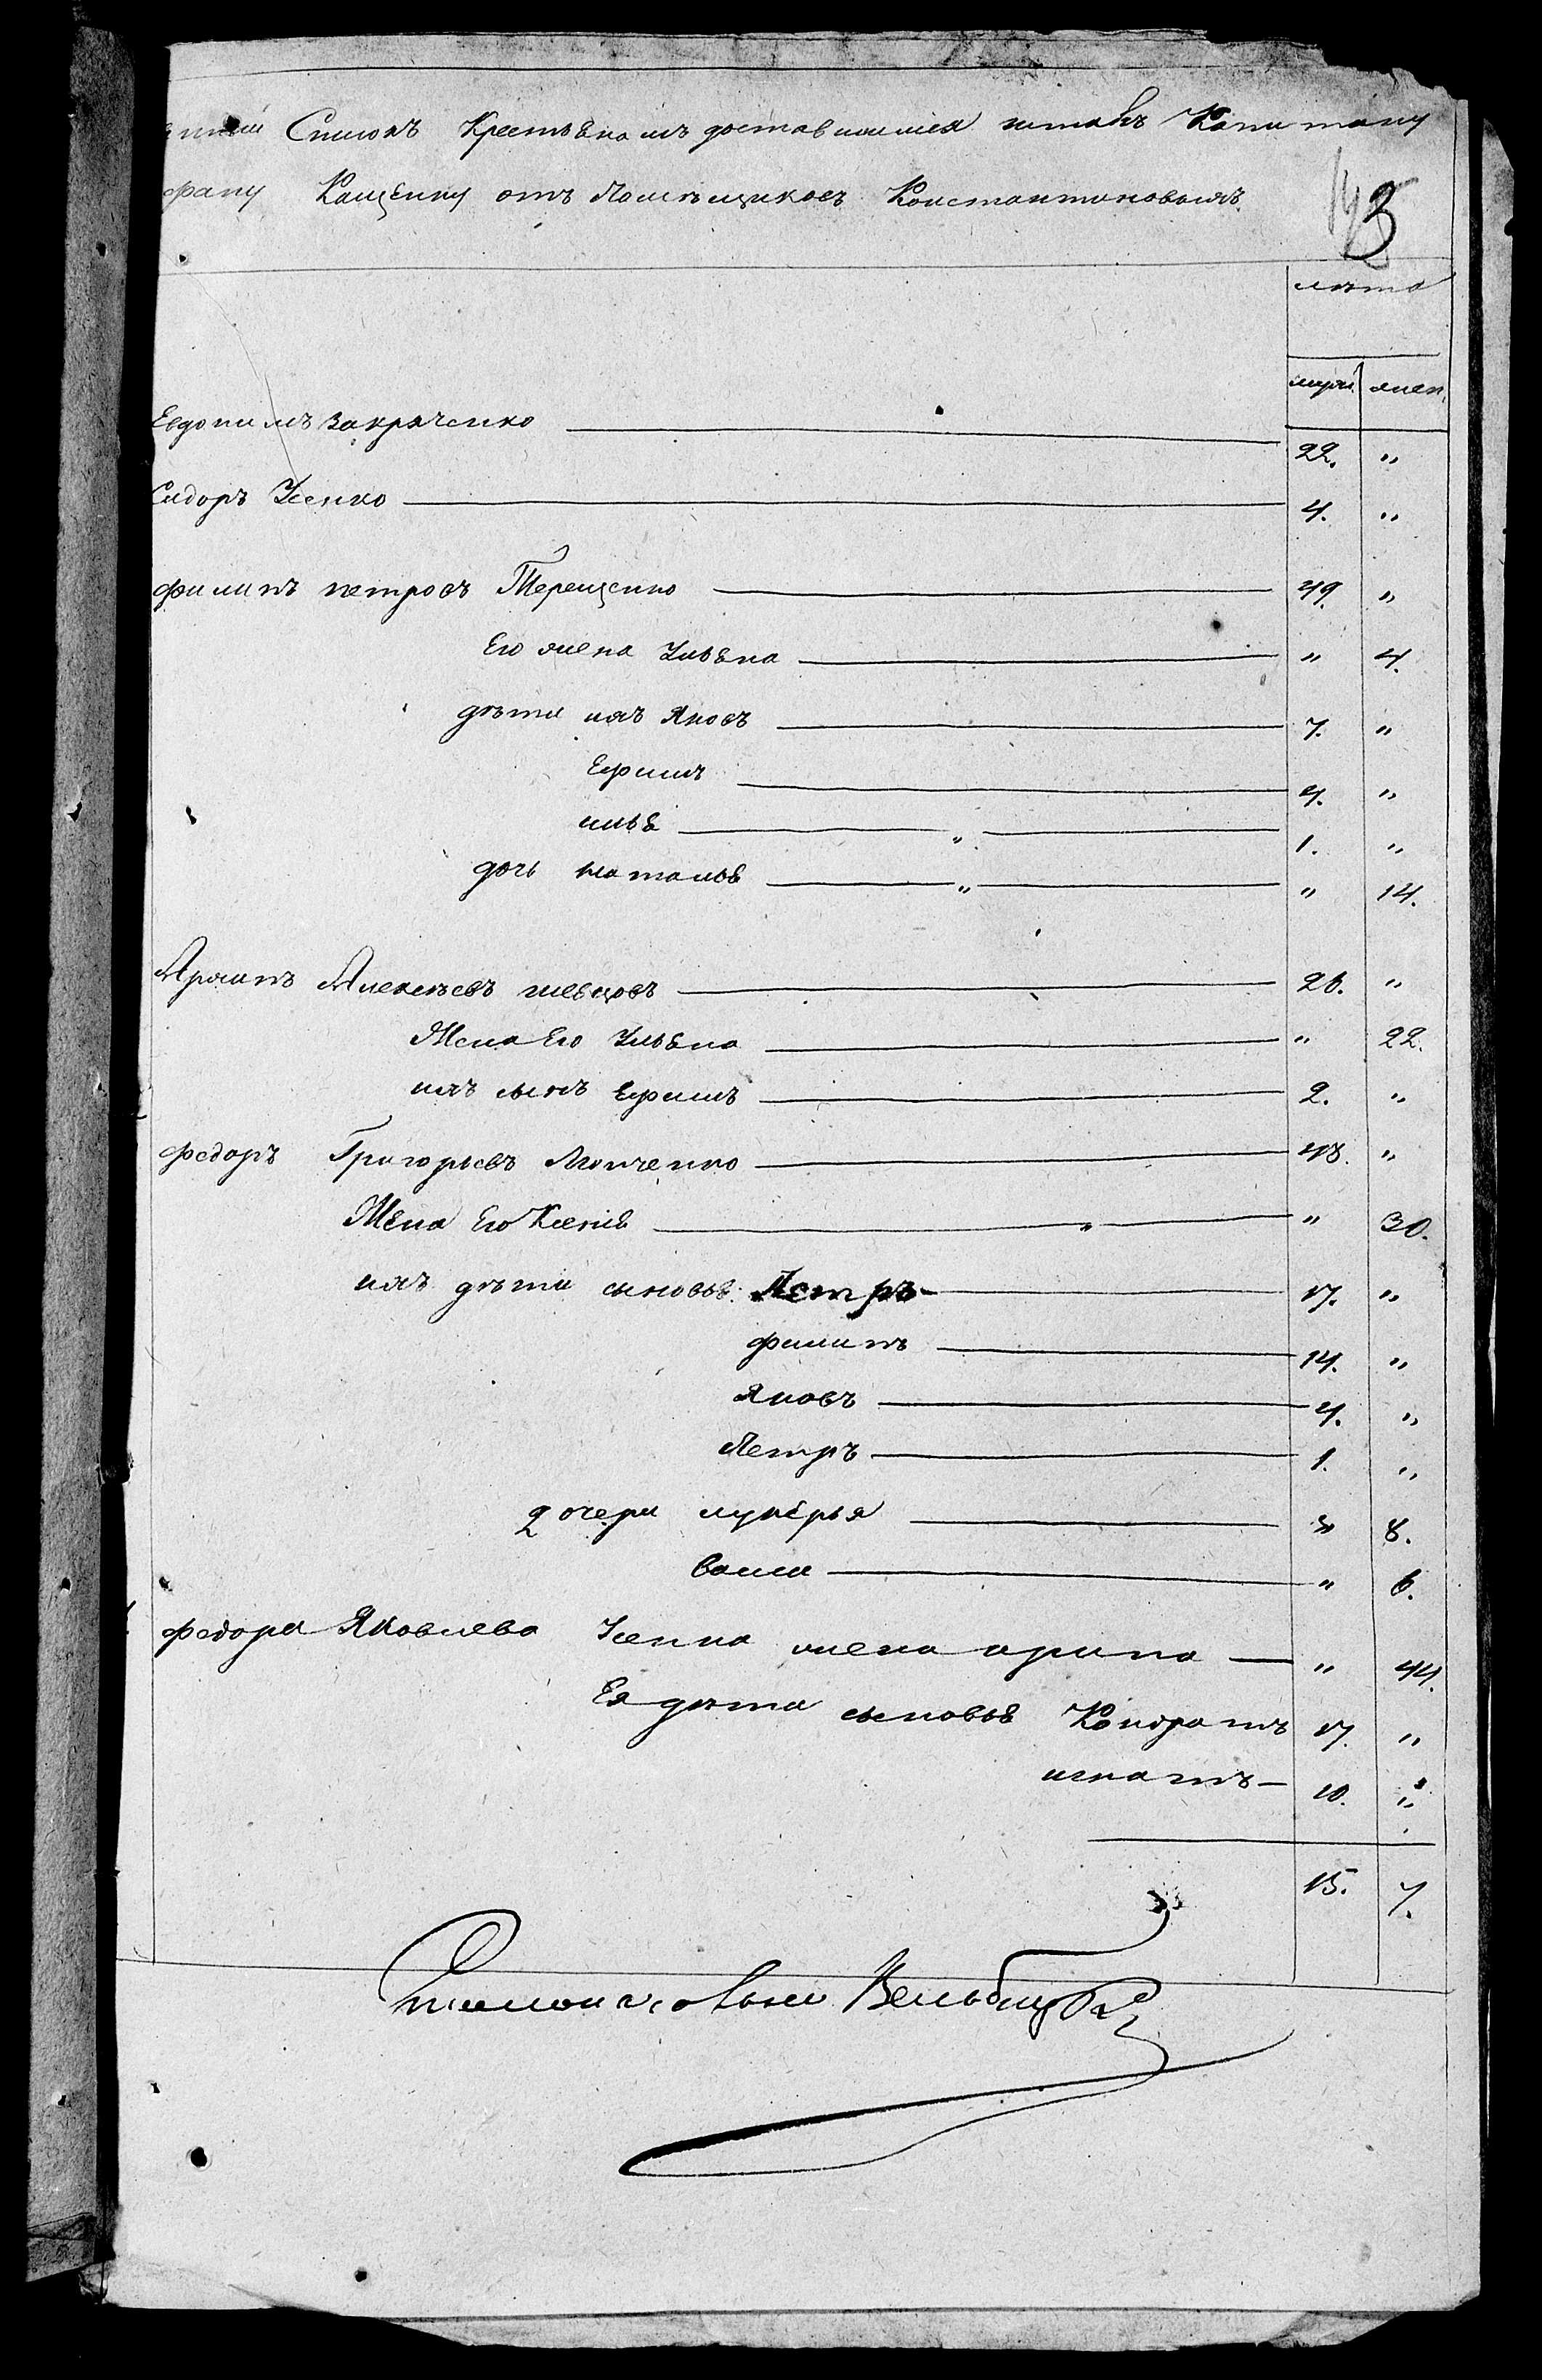 Списокъ Крестьянамъ доставшимся штабъ Капитану
Кащенку отъ Помѣщиковъ Константиновыхъ
3
лѣта
муж. жен.
Евдокимъ Закряченко 22. "
Сидоръ Усенко 4. "
филипъ петровъ Терещенко 49. "
Его жена Ульяна " 4.
дѣти ихъ Яковъ 7. "
Ефимъ 4. "
илья " 1. "
дочь наталья " " 14.
Архипъ Алексѣевъ шевцовъ 26. "
Жена Его Ульяна " 22.
ихъ сынъ Ефимъ 2. "
федоръ Григорьевъ Момченко 48. "
Жена Его Ксенія " " 30.
ихъ дѣти сыновья: Петръ 17. "
филипъ 14. "
Яковъ 4. "
Петръ 1. "
дочери лукерья " 8.
" 6.
федора Яковлева Усенка жена арина " 44.
Ея дѣти сыновья Кондратъ 17. "
игнатъ 10. "
15. 7.